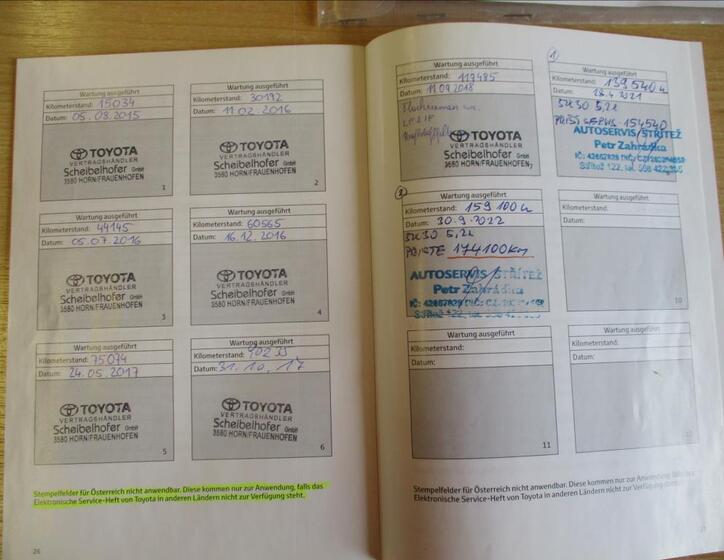 Wartung ausgeführt
Kilometerstand: 15034
Datum: 05.08.2015
TOYOTA
VERTRAGSHÄNDLER
Scheibelhofer GmbH
3580 HORN/FRAUENHOFEN
1
Wartung ausgeführt
Kilometerstand: 30192
Datum: 11.02.2016
TOYOTA
VERTRAGSHÄNDLER
Scheibelhofer GmbH
3580 HORN/FRAUENHOFEN
2
Wartung ausgeführt
Kilometerstand: 44145
Datum: 05.07.2016
TOYOTA
VERTRAGSHÄNDLER
Scheibelhofer GmbH
3580 HORN/FRAUENHOFEN
3
Wartung ausgeführt
Kilometerstand: 60565
Datum: 16.12.2016
TOYOTA
VERTRAGSHÄNDLER
Scheibelhofer GmbH
3580 HORN/FRAUENHOFEN
4
Wartung ausgeführt
Kilometerstand: 75074
Datum: 24.05.2017
TOYOTA
VERTRAGSHÄNDLER
Scheibelhofer GmbH
3580 HORN/FRAUENHOFEN
5
Wartung ausgeführt
Kilometerstand:
Datum: 31.10.17
TOYOTA
VERTRAGSHÄNDLER
Scheibelhofer GmbH
3580 HORN/FRAUENHOFEN
6
Stempelfelder für Österreich nicht anwendbar. Diese kommen nur zur Anwendung, falls das
Elektronische Service-Heft von Toyota in anderen Ländern nicht zur Verfügung steht.
26
Wartung ausgeführt
Kilometerstand: 117485
Datum: 11.09.2018
TOYOTA
VERTRAGSHÄNDLER
Scheibelhofer GmbH
3580 HORN/FRAUENHOFEN
7
1
Wartung ausgeführt
Kilometerstand: 139540
Datum: 2021
5W30 5,2L
154540
AUTOSERVIS STŘÍTEŽ
Petr Zahrádka
Střítež 122, tel.
2
Wartung ausgeführt
Kilometerstand: 159100
Datum: 30.9.2022
5W30 5,2L
PŘÍŠTĚ 174100km
AUTOSERVIS STŘÍTEŽ
Petr Zahrádka
Střítež 122, tel.
Kilometerstand:
Datum:
10
Wartung ausgeführt
Kilometerstand:
Datum:
11
Wartung ausgeführt
Kilometerstand:
Datum:
12
Stempelfelder für Österreich nicht anwendbar. Diese kommen nur zur Anwendung, falls das
Elektronische Service-Heft von Toyota in anderen Ländern nicht zur Verfügung steht.